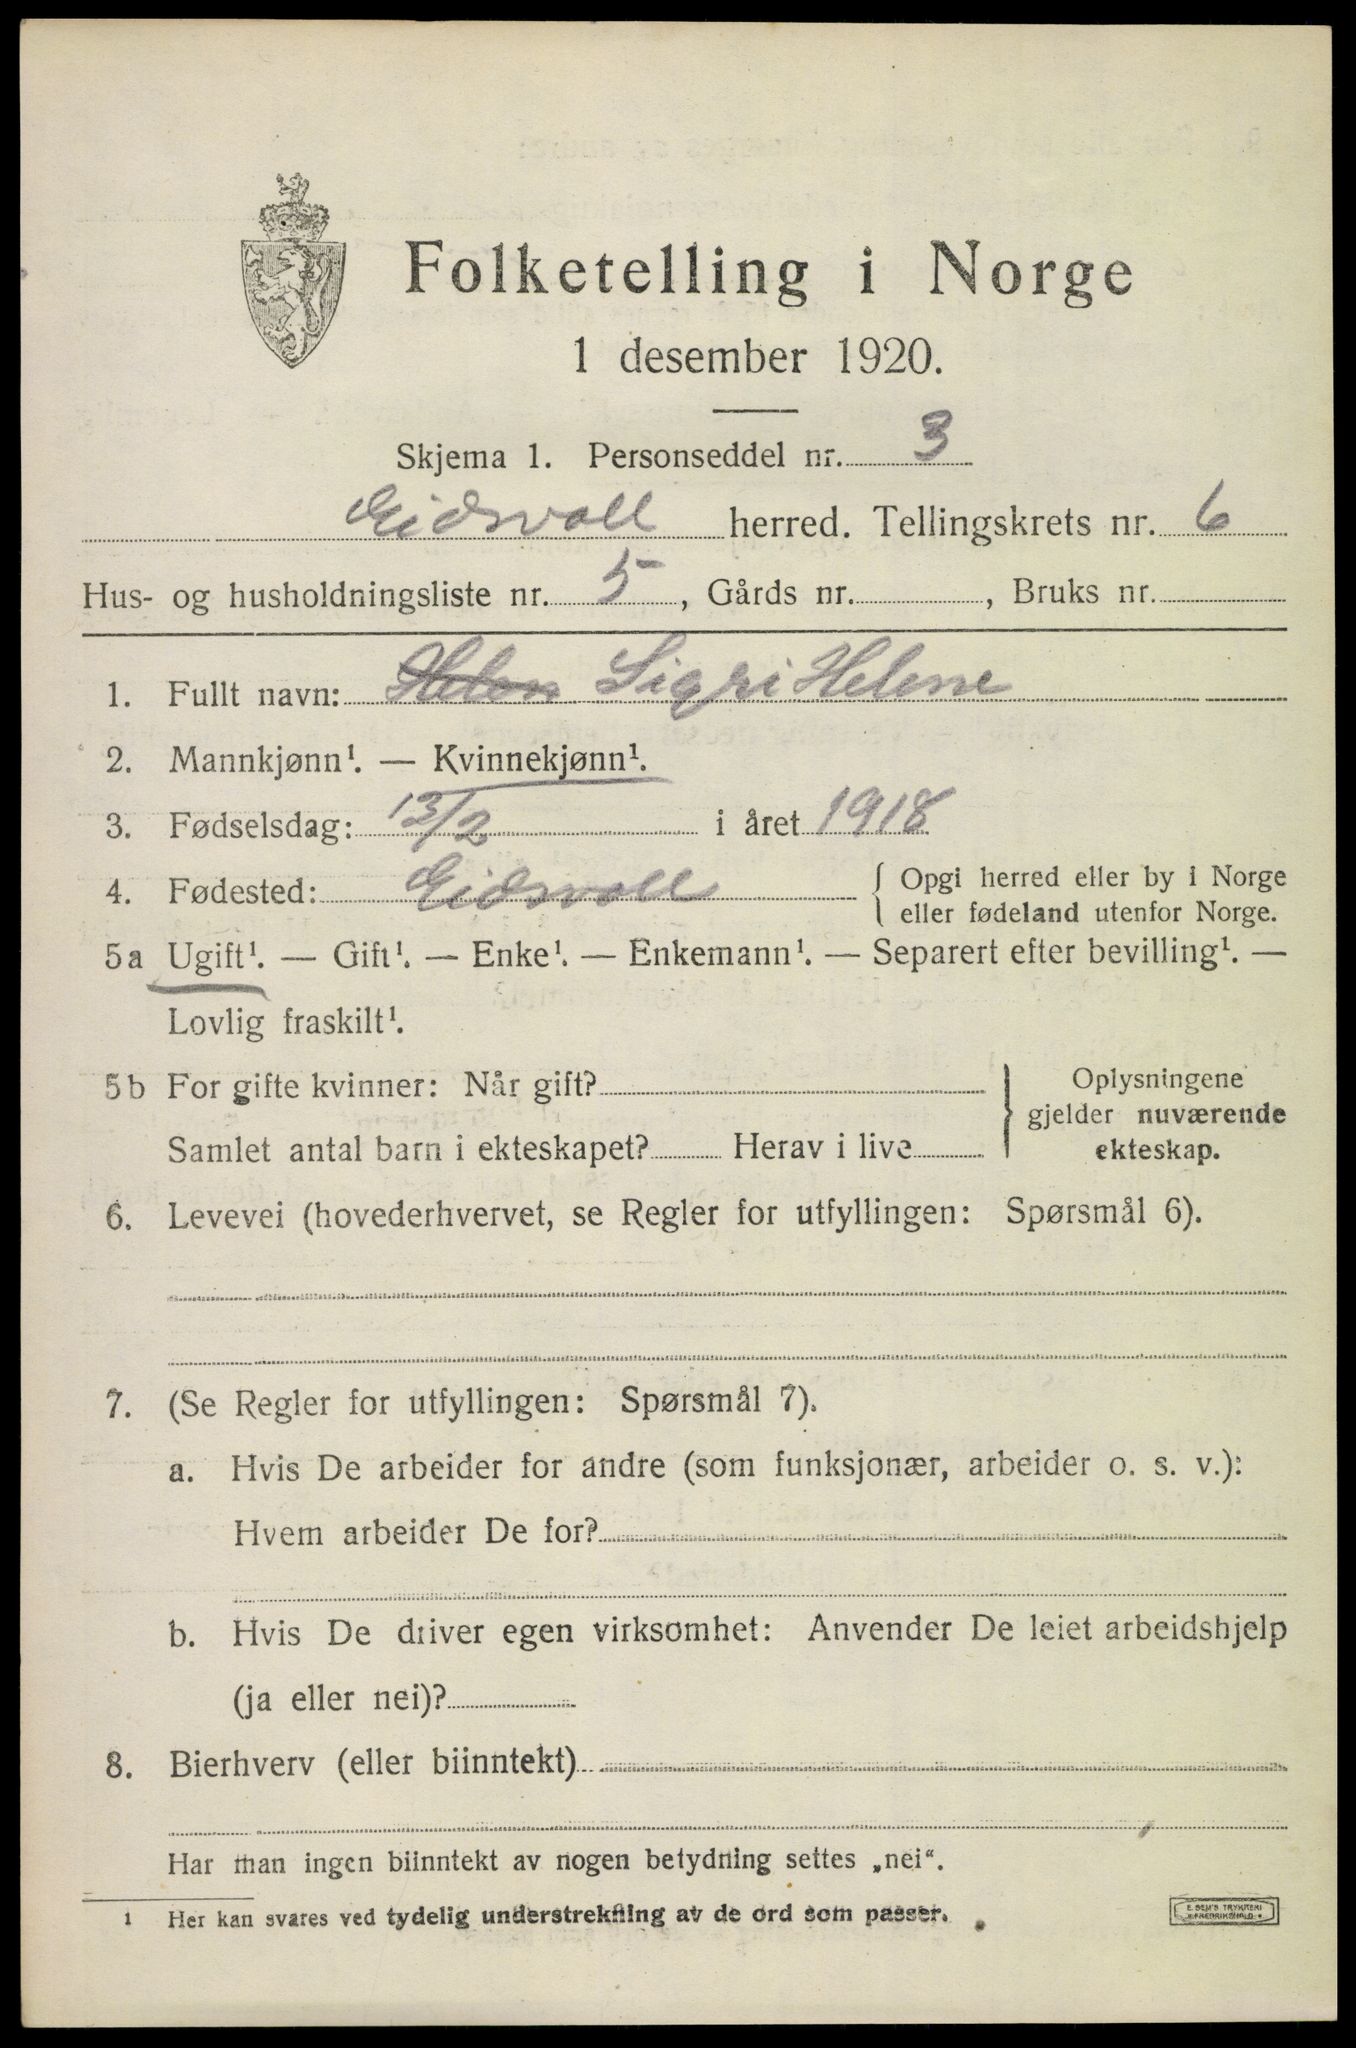 Folketelling i Norge
1 desember 1920.
Skjema 1. Personseddel nr. 3
Eidsvoll herred. Tellingskrets nr. 6
Hus- og husholdningsliste nr. 5, Gårds nr. , Bruks nr.
1. Fullt navn: Helen Sigri Helene
2. Mannkjønn¹. — Kvinnekjønn¹.
3. Fødselsdag: 13/2 i året 1918
4. Fødested: Eidsvoll { Opgi herred eller by i Norge
eller fødeland utenfor Norge.
5a Ugift¹. — Gift¹. — Enke¹. — Enkemann¹. — Separert efter bevilling¹. —
Lovlig fraskilt¹.
5b For gifte kvinner: Når gift? } Oplysningene
gjelder nuværende
Samlet antal barn i ekteskapet? Herav i live ekteskap.
6. Levevei (hovederhvervet, se Regler for utfyllingen: Spørsmål 6).
7. (Se Regler for utfyllingen: Spørsmål 7).
a. Hvis De arbeider for andre (som funksjonær, arbeider o. s. v.):
Hvem arbeider De for?
b. Hvis De driver egen virksomhet: Anvender De leiet arbeidshjelp
(ja eller nei)?
8. Bierhverv (eller biinntekt)
Har man ingen biinntekt av nogen betydning settes „nei“.
1 Her kan svares ved tydelig understrekning av de ord som passer.
E. SEM'S TRYKKERI
FREDRIKSHALD